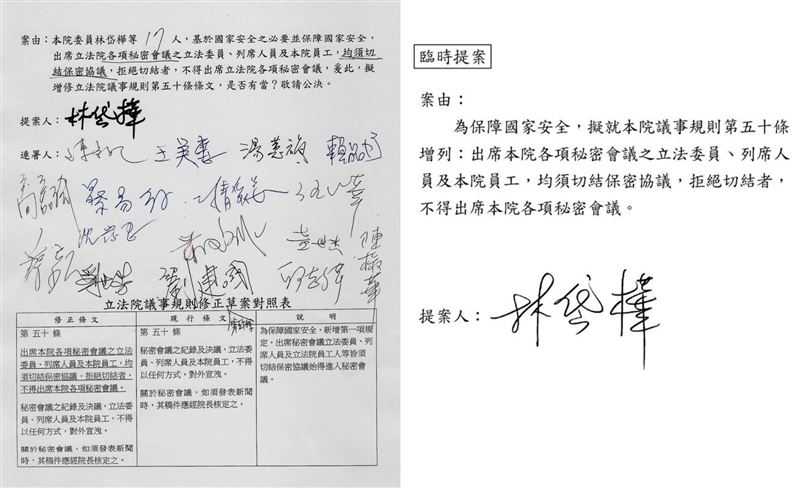 案由：本院委員林岱樺等17人，基於國家安全之必要並保障國家安全，
出席立法院各項秘密會議之立法委員、列席人員及本院員工，均須切
結保密協議，拒絕切結者，不得出席本院各項秘密會議，爰此，擬
增修立法院議事規則第五十條條文，是否有當？敬請公決。
提案人：林岱樺
連署人：
王美惠 湯蕙禎 賴品妤
蔡易餘
沈發惠
劉建國 邱志偉 陳椒華
立法院議事規則修正草案對照表
修正條文 現行條文 說明
第五十條
出席本院各項秘密會議之立法
委員、列席人員及本院員工，均
須切結保密協議，拒絕切結者，
不得出席本院各項秘密會議。
秘密會議之紀錄及決議，立法委
員、列席人員及本院員工，不得
以任何方式，對外宣洩。
關於秘密會議，如須發表新聞
時，其稿件應經院長核定之。
第五十條
秘密會議之紀錄及決議，立法委
員、列席人員及本院員工，不得
以任何方式，對外宣洩。
關於秘密會議，如須發表新聞
時，其稿件應經院長核定之。
為保障國家安全，新增第一項規
定，出席秘密會議立法委員、列
席人員及立法院員工人等皆須
切結保密協議始得進入秘密會
議。
臨時提案
案由：
為保障國家安全，擬就本院議事規則第五十條
增列：出席本院各項秘密會議之立法委員、列席人
員及本院員工，均須切結保密協議，拒絕切結者，
不得出席本院各項秘密會議。
提案人：林岱樺